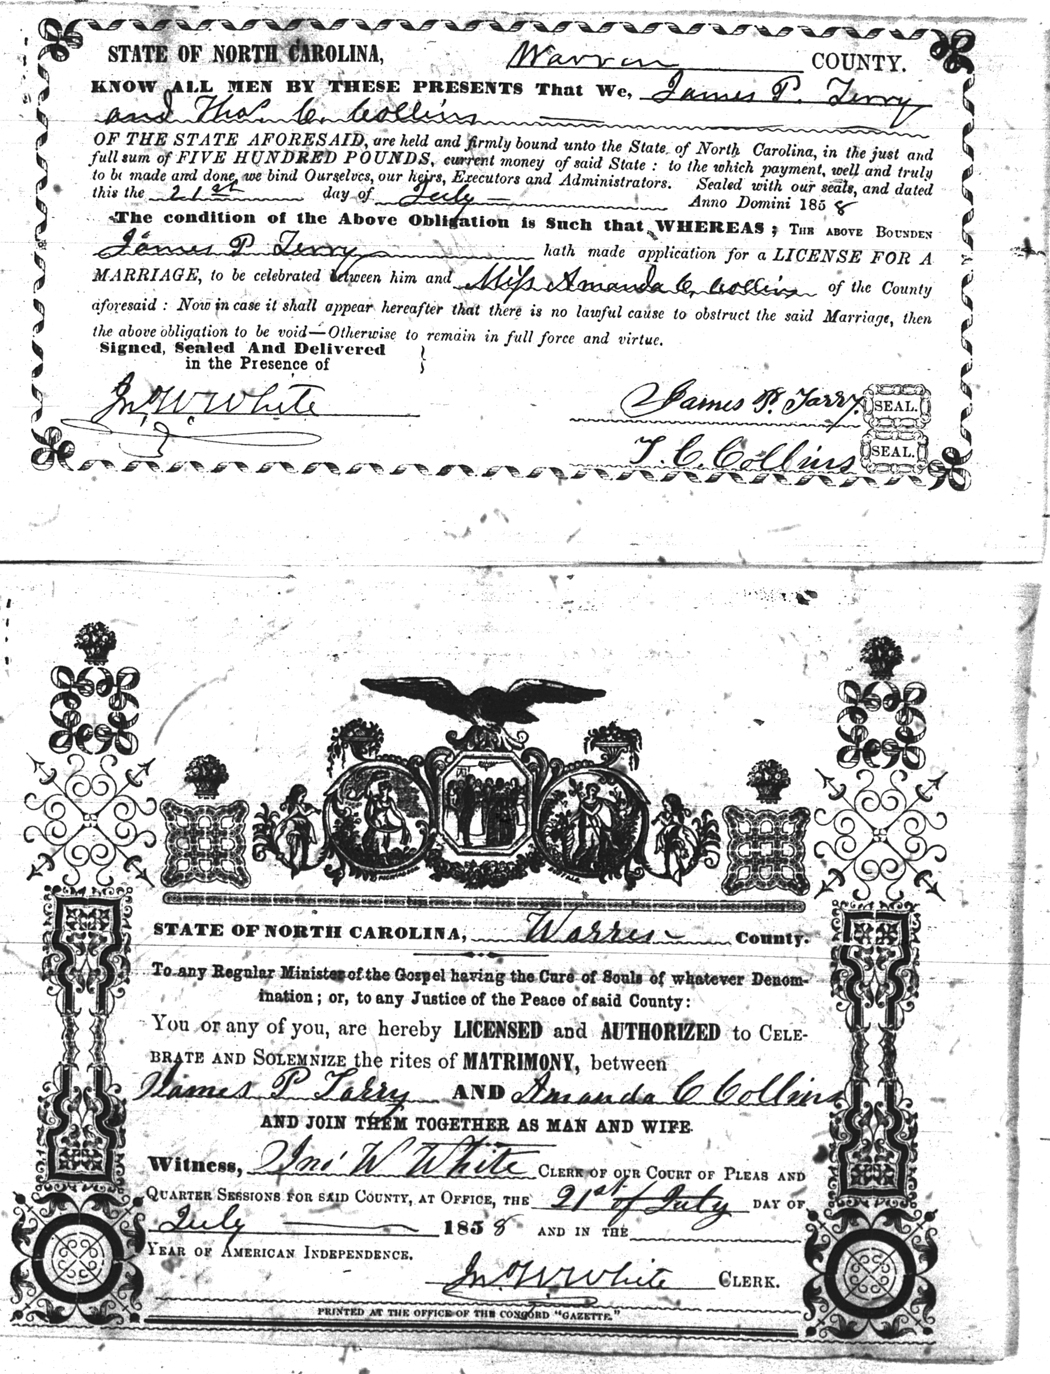 STATE OF NORTH CAROLINA, Warren COUNTY.
KNOW ALL MEN BY THESE PRESENTS That We, James P. Terry
and Thos. C. Collins
OF THE STATE AFORESAID, are held and firmly bound unto the State of North Carolina, in the just and
full sum of FIVE HUNDRED POUNDS, current money of said State : to the which payment, well and truly
to be made and done, we bind Ourselves, our heirs, Executors and Administrators. Sealed with our seals, and dated
this the 21st day of July Anno Domini 1858
The condition of the Above Obligation is Such that WHEREAS ; THE ABOVE BOUNDEN
James P. Terry hath made application for a LICENSE FOR A
MARRIAGE, to be celebrated between him and Miss Amanda C. Collins of the County
aforesaid : Now in case it shall appear hereafter that there is no lawful cause to obstruct the said Marriage, then
the above obligation to be void—Otherwise to remain in full force and virtue.
Signed, Sealed And Delivered
in the Presence of
Jno. W. White James P. Tarry. SEAL.
T. C. Collins SEAL.
STATE OF NORTH CAROLINA, Warren County.
To any Regular Minister of the Gospel having the Cure of Souls of whatever Denom-
ination ; or, to any Justice of the Peace of said County:
You or any of you, are hereby LICENSED and AUTHORIZED to CELE-
BRATE AND SOLEMNIZE the rites of MATRIMONY, between
James P Tarry AND Amanda C Collins
AND JOIN THEM TOGETHER AS MAN AND WIFE.
Witness, Jno W White CLERK OF OUR COURT OF PLEAS AND
QUARTER SESSIONS FOR SAID COUNTY, AT OFFICE, THE 21st of July DAY OF
July 1858 AND IN THE
YEAR OF AMERICAN INDEPENDENCE.
Jno. W. White CLERK.
PRINTED AT THE OFFICE OF THE CONCORD "GAZETTE."